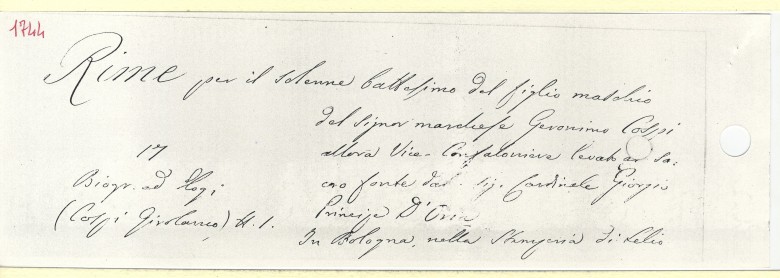 1744
Rime per il solenne battesimo del figlio maschio
del signor marchese Geronimo Cospi
allora Vice-Confaloniere levato al Sa:
cro fonte dal sig. Cardinale Giorgio
Principe D'Oria
In Bologna, nella Stamperia di Lelio
17
Biogr. ed Elogi
(Cospi Girolamo) N. 1.